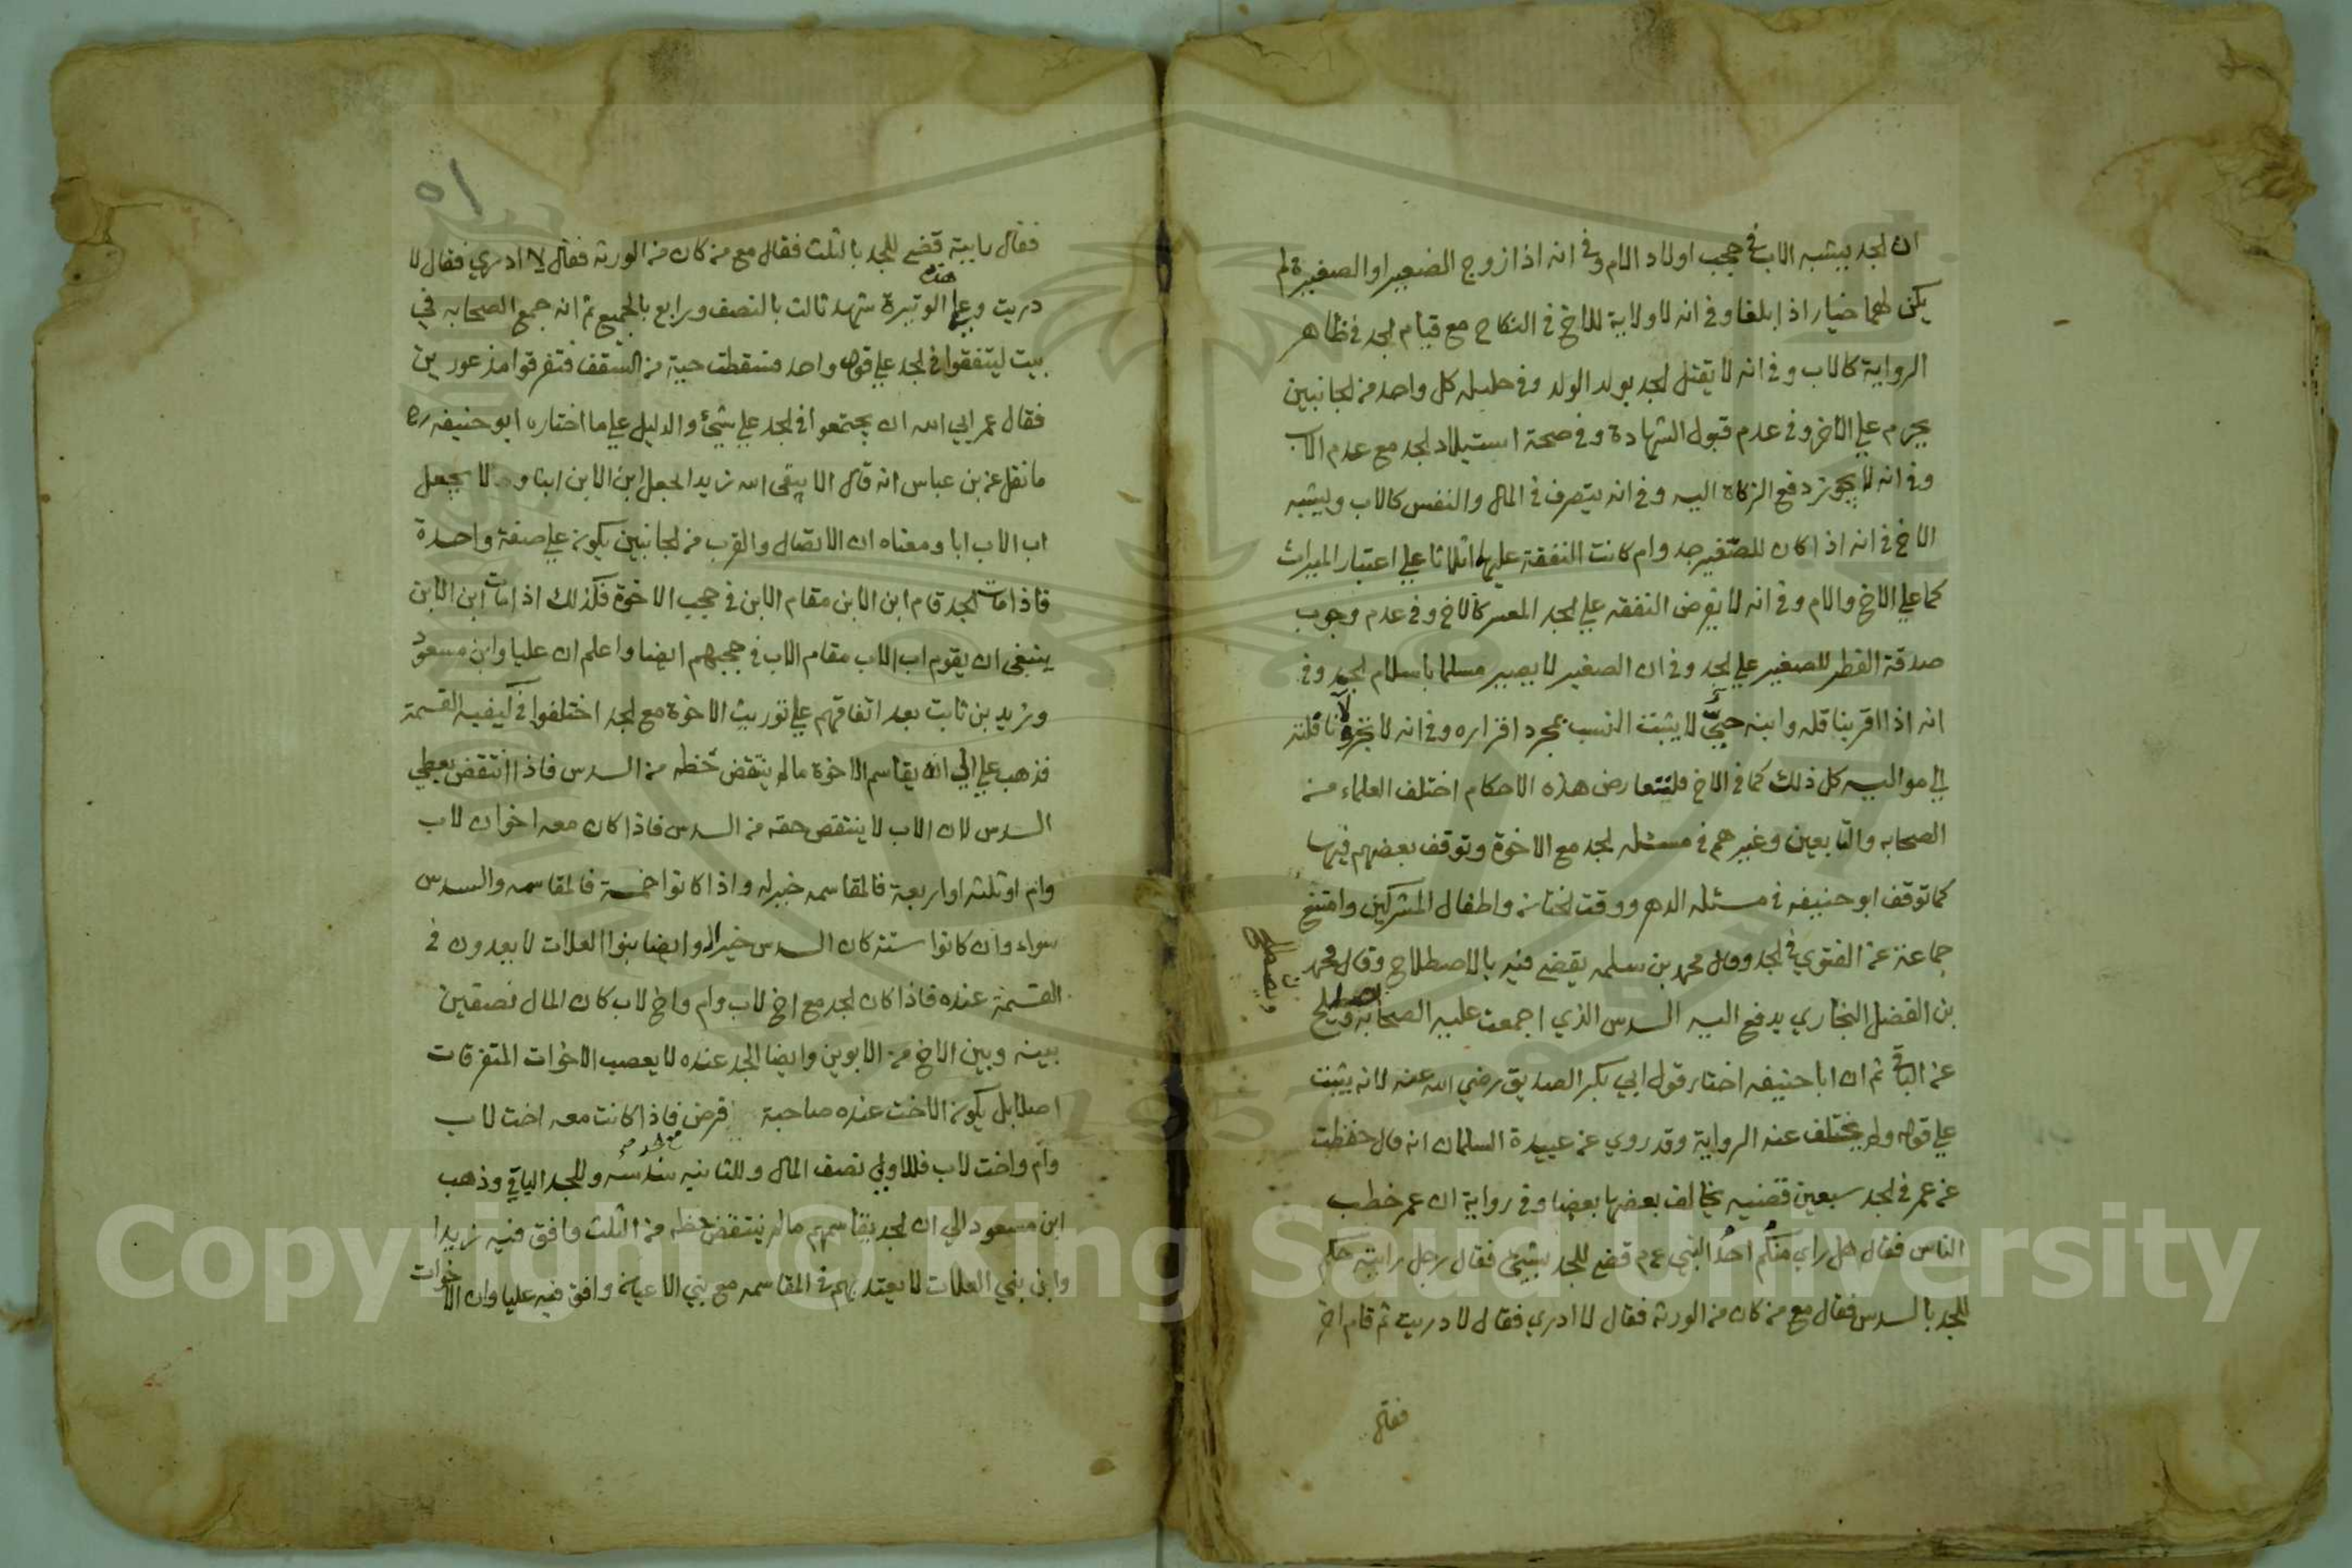 ان الجد يشبه الاب في حجب اولاد الام وفي انه اذا زوج الصغير او الصغيرة لم
يكن لهما خيار اذا بلغا وفي انه لا ولاية للاخ في النكاح مع قيام الجد في ظاهر
الرواية كالاب وفي انه لا يقتل الجد بولد الولد وفي حليلة كل واحد من الجانبين
يحرم علي الاخر وفي عدم قبول الشهادة وفي صحة استيلاد الجد مع عدم الاب
وفي انه لا يجوز دفع الزكاة اليه وفي انه يتصرف في المال والنفس كالاب ويشبه
الاخ في انه اذا كان للصغير جد وام كانت النفقة عليهما اثلاثا علي اعتبار الميراث
كما علي الاخ والام وفي انه لا يفرض النفقه علي الجد المعسر كالاخ وفي عدم وجوب
صدقة الفطر للصغير علي الجد وفي ان الصغير لا يصير مسلما باسلام الجد وفي
انه اذا اقر بنافلة وابنه حي لا يثبت النسب بمجرد اقراره وفي انه لا يجر ولا نافلته
الي مواليه كل ذلك كما في الاخ فلتعارض هذه الاحكام اختلف العلماء من
الصحابه والتابعين وغيرهم في مسئله الجد مع الاخوة وتوقف بعضهم فيها
كما توقف ابو حنيفه في مسئله الدهر ووقت الختان واطفال المشركين وامتنع
جماعة عن الفتوي في الجد وقال محمد بن سلمه يقضي فيه بالاصطلاح وقال محمد
بن الفضل البخاري يدفع اليه السدس الذي اجمعت عليه الصحابه
ويصطلح
عن الباقي ثم ان ابا حنيفه اختار قول ابي بكر الصديق رضي الله عنه لانه يثبت
علي قوله ولم يختلف عنه الرواية وقد روي عن عبيدة السلمان انه قال حفظت
عن عمر في الجد سبعين قضيه يخالف بعضها بعضا وفي رواية ان عمر خطب
الناس فقال هل راي منكم احد النبي عم قضي للجد بشيئ فقال رجل رايته حكم
للجد بالسدس فقال مع من كان من الورثه فقال لا ادري فقال لا دريت ثم قام اخر
فقال
٥١
فقال رايته قضي للجد بالثلث فقال مع من كان من الورثه فقال لا ادري فقال لا
دريت وعلي هذه الوتيرة شهد ثالث بالنصف ورابع بالجميع ثم انه جمع الصحابه في
بيت ليتفقوا في الجد علي قول واحد فسقطت حية من السقف فتفرقوا مذعورين
فقال عمر ابي الله ان يجتمعوا في الجد علي شيئ والدليل علي ما اختاره ابو حنيفه رح
ما نقل عن بن عباس انه قال الا يتقي الله زيد الجعل ابن الابن ابنا ولا يجعل
اب الاب ابا ومعناه ان الاتصال والقرب من الجانبين يكون علي صفة واحدة
فاذا مات الجد قام ابن الابن مقام الابن في حجب الاخوة فكذلك اذا مات ابن الابن
ينبغي ان يقوم اب الاب مقام الاب في حجبهم ايضا واعلم ان عليا وابن مسعود
وزيد بن ثابت بعد اتفاقهم علي توريث الاخوة مع الجد اختلفوا في كيفيه القسمة
فذهب علي الي انه يقاسم الاخوة ما لم ينتقض حظه من السدس فاذا انتقض يعطي
السدس لان الاب لا ينتقص حقه من السدس فاذا كان معه اخوان لاب
وام او ثلثه او اربعة فالمقاسمه خير له واذا كانوا خمسة فالمقاسمه والسدس
سواء وان كانوا ستة كان السدس خير له وايضا بنوا العلات لا يعدون في
القسمة عنده فاذا كان الجد مع اخ لاب وام واخ لاب كان المال نصفين
بينه وبين الاخ من الابوين وايضا الجد عنده لا يعصب الاخوات المتفرقات
اصلا بل يكون الاخت عنده صاحبة فرض فاذا كانت معه اخت لاب
وام واخت لاب فللاولي نصف المال وللثانيه سدسه وللجد الباقي وذهب
ابن مسعود الي ان الجد يقاسمهم ما لم ينتقض حظه من الثلث وافق فيه زيدا
وان بني العلات لا يعتد بهم في المقاسمه مع بني الاعيان وافق فيه عليا وان الاخوات